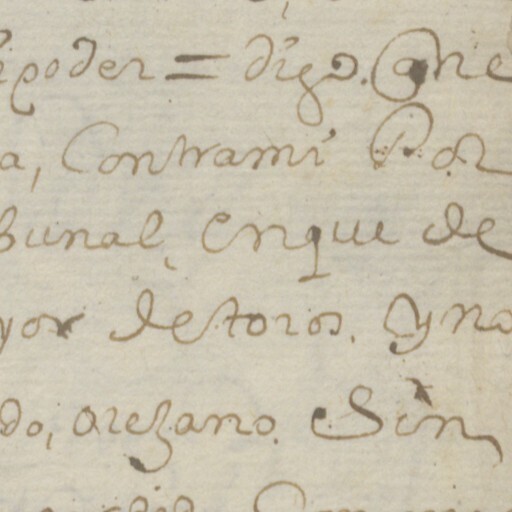 poder = digo. Que
a, Contrami Por
bunal, Enque de
yor de toros. Y no
do, orezano. Sin